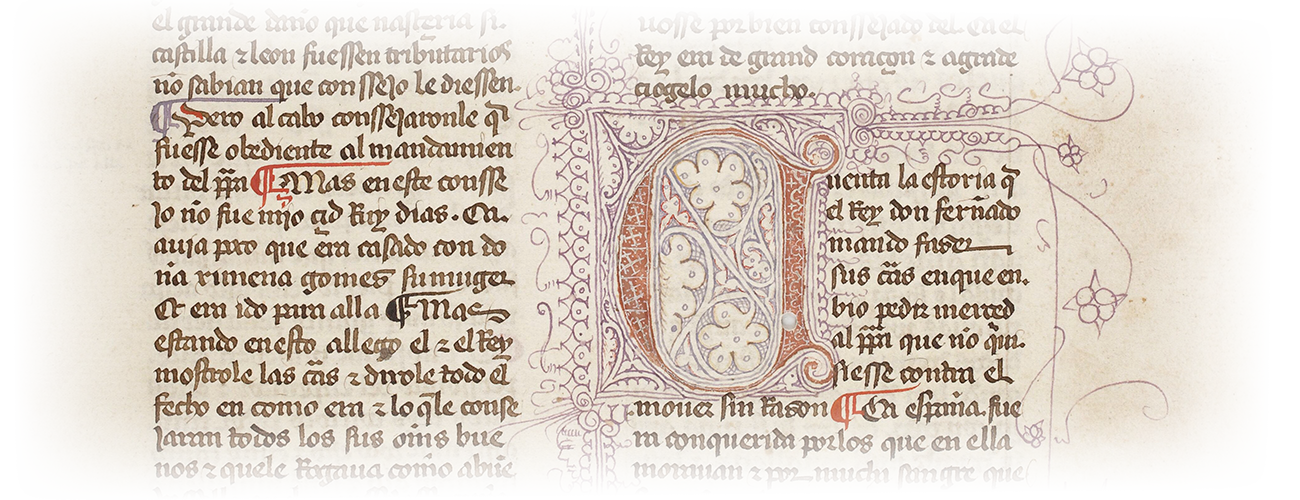 el grande daño que nasçeria si.
castilla ⁊ leon fuessen tributarios
no sabian que conssejo le diessen.
¶ Pero al cabo conssejaronle q̄
fuesse obediente al mandamien
to del pp̄a ¶ Mas en este conse
jo no fue mjo çid Ruy dias. Ca.
auja poco que era casado con do
ña ximena gomes su muger
Et era jdo para alla ¶ Mas
estando en esto allego el ⁊ el Rey
mostrole las c̄as ⁊ dixole todo el
fecho en como era ⁊ lo q̄le conse
jaran todos los sus om̄s bue
nos ⁊ quele Rogaua como abue
uosse por bien conssejado del. En el
Rey era de grand coraçon ⁊ agrade
çiogelo mucho.
Cuenta la estoria q̄
el Rey don fern̄ado
mando faser
sus c̄as en que en.
bio pedir merçed
al pp̄a que no q̄si.
siesse contra el
mouer sin Rason ¶ Ca españa fue
ra conquerida por los que en ella
morauan ⁊ por mucha sangre que